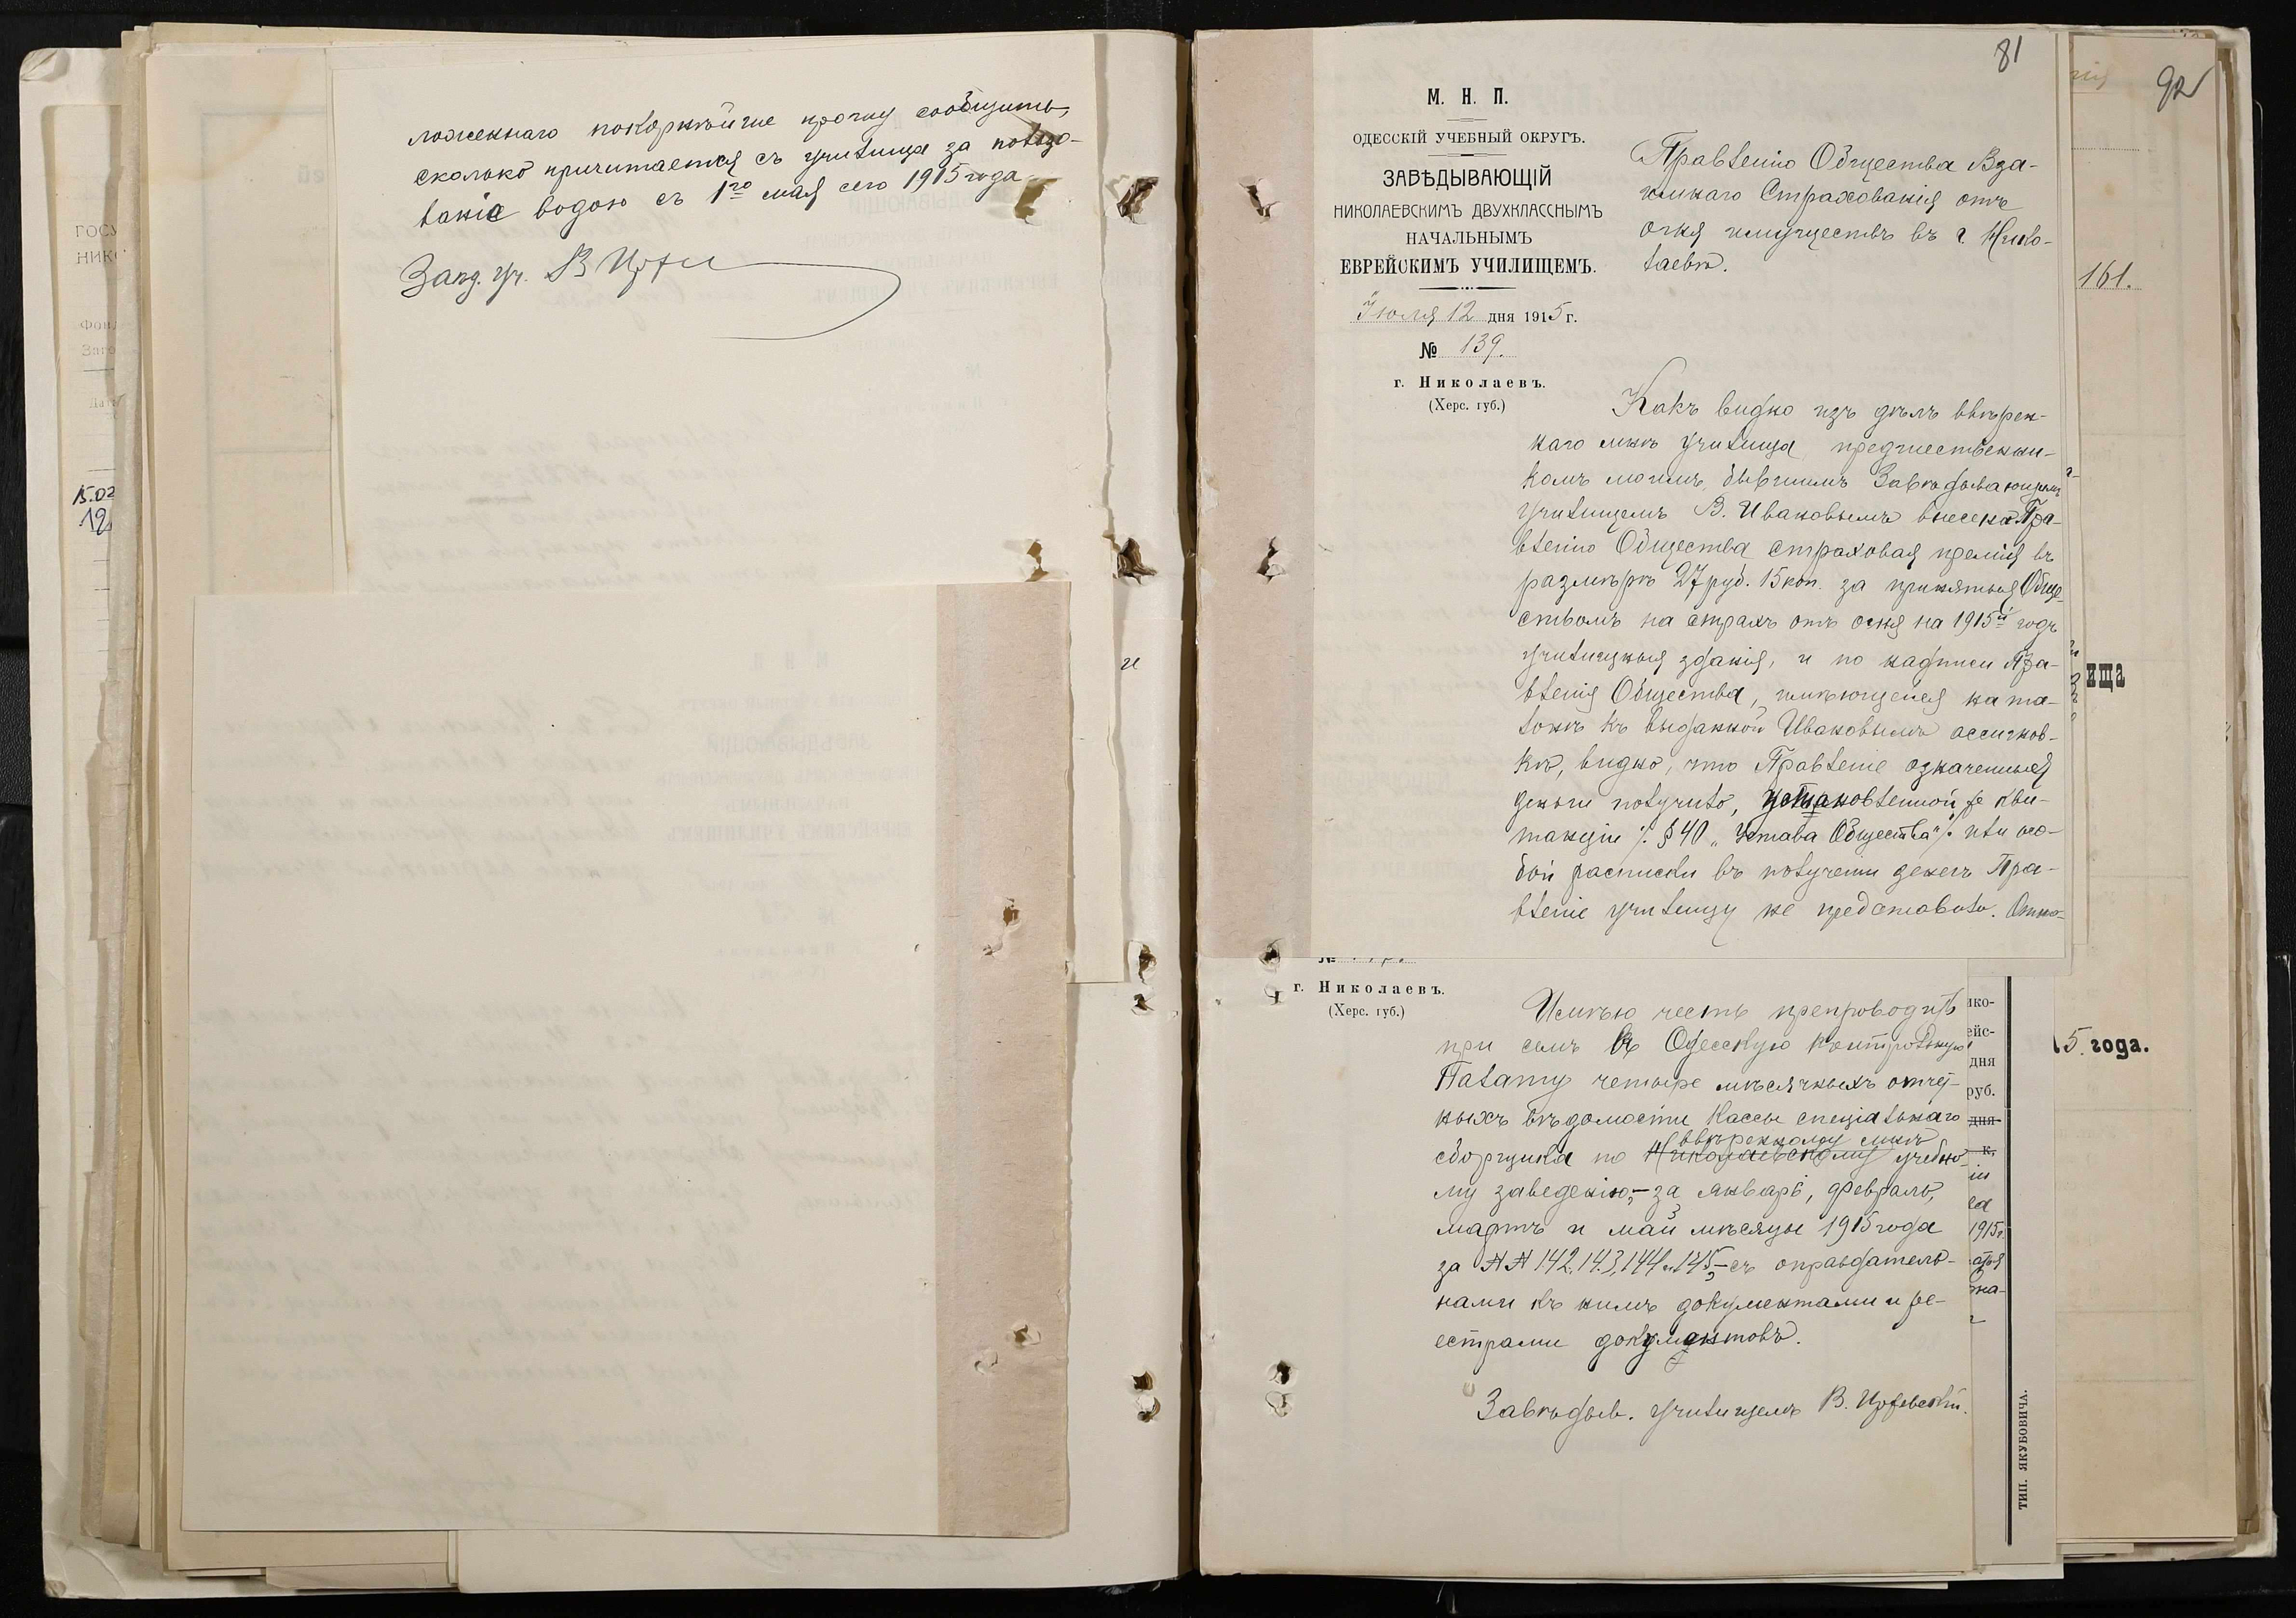 ложеннаго покорнѣйше прошу сообщить,
сколько причитается съ училища за пользо-
ваніе водою съ 1го мая сего 1915 года
Завѣд. уч.
81
М. Н. П.
ОДЕССКІЙ УЧЕБНЫЙ ОКРУГЪ.
ЗАВѢДЫВАЮЩІЙ
НИКОЛАЕВСКИМЪ ДВУХКЛАССНЫМЪ
НАЧАЛЬНЫМЪ
ЕВРЕЙСКИМЪ УЧИЛИЩЕМЪ.
Іюля 12 дня 1915 г.
№ 139.
г. Николаевъ.
(Херс. губ.)
Правленію Общества Вза-
имнаго Страхованія отъ
огня имуществъ въ г. Нико-
лаевѣ.
Какъ видно изъ дѣлъ ввѣрен-
наго мнѣ училища, предшественни-
комъ моимъ, бывшимъ Завѣдывающимъ
училищемъ В. Ивановымъ внесена Пра-
вленію Общества страховая премія въ
размѣрѣ 27 руб. 15 коп. за принятыя Обще-
ствомъ на страхъ отъ огня на 1915й годъ
училищныя зданія, и по надписи Пра-
вленія Общества, имѣющейся на та-
лонѣ къ выданной Ивановымъ ассигнов-
кѣ, видно, что Правленіе означенныя
деньги получило, установленной же кви-
танціи /. § 40 „Устава Общества" /. или осо-
бой расписки въ полученіи денегъ Пра-
вленіе училищу не представило. Отно-
г. Николаевъ.
(Херс. губ.)
Имѣю честь препроводить
при семъ въ Одесскую Контрольную
Палату четыре мѣсячныхъ отчет-
ныхъ вѣдомости кассы спеціальнаго
ввѣренному мнѣ
сборщика по Николаевскому учебно-
му заведенію,– за январь, февраль,
мартъ и май мѣсяцы 1915 года
за №№ 142, 143, 144 и 145,– съ оправдатель-
нами къ нимъ документами и ре-
естрами документовъ.
Завѣдыв. училищемъ В.
92
161.
ища
5. года.
ико-
ейс-
дня
руб.
дня
к.
1915г.
ТИП. ЯКУБОВИЧА.
ГОСУ
НИК
Фонд
15.02